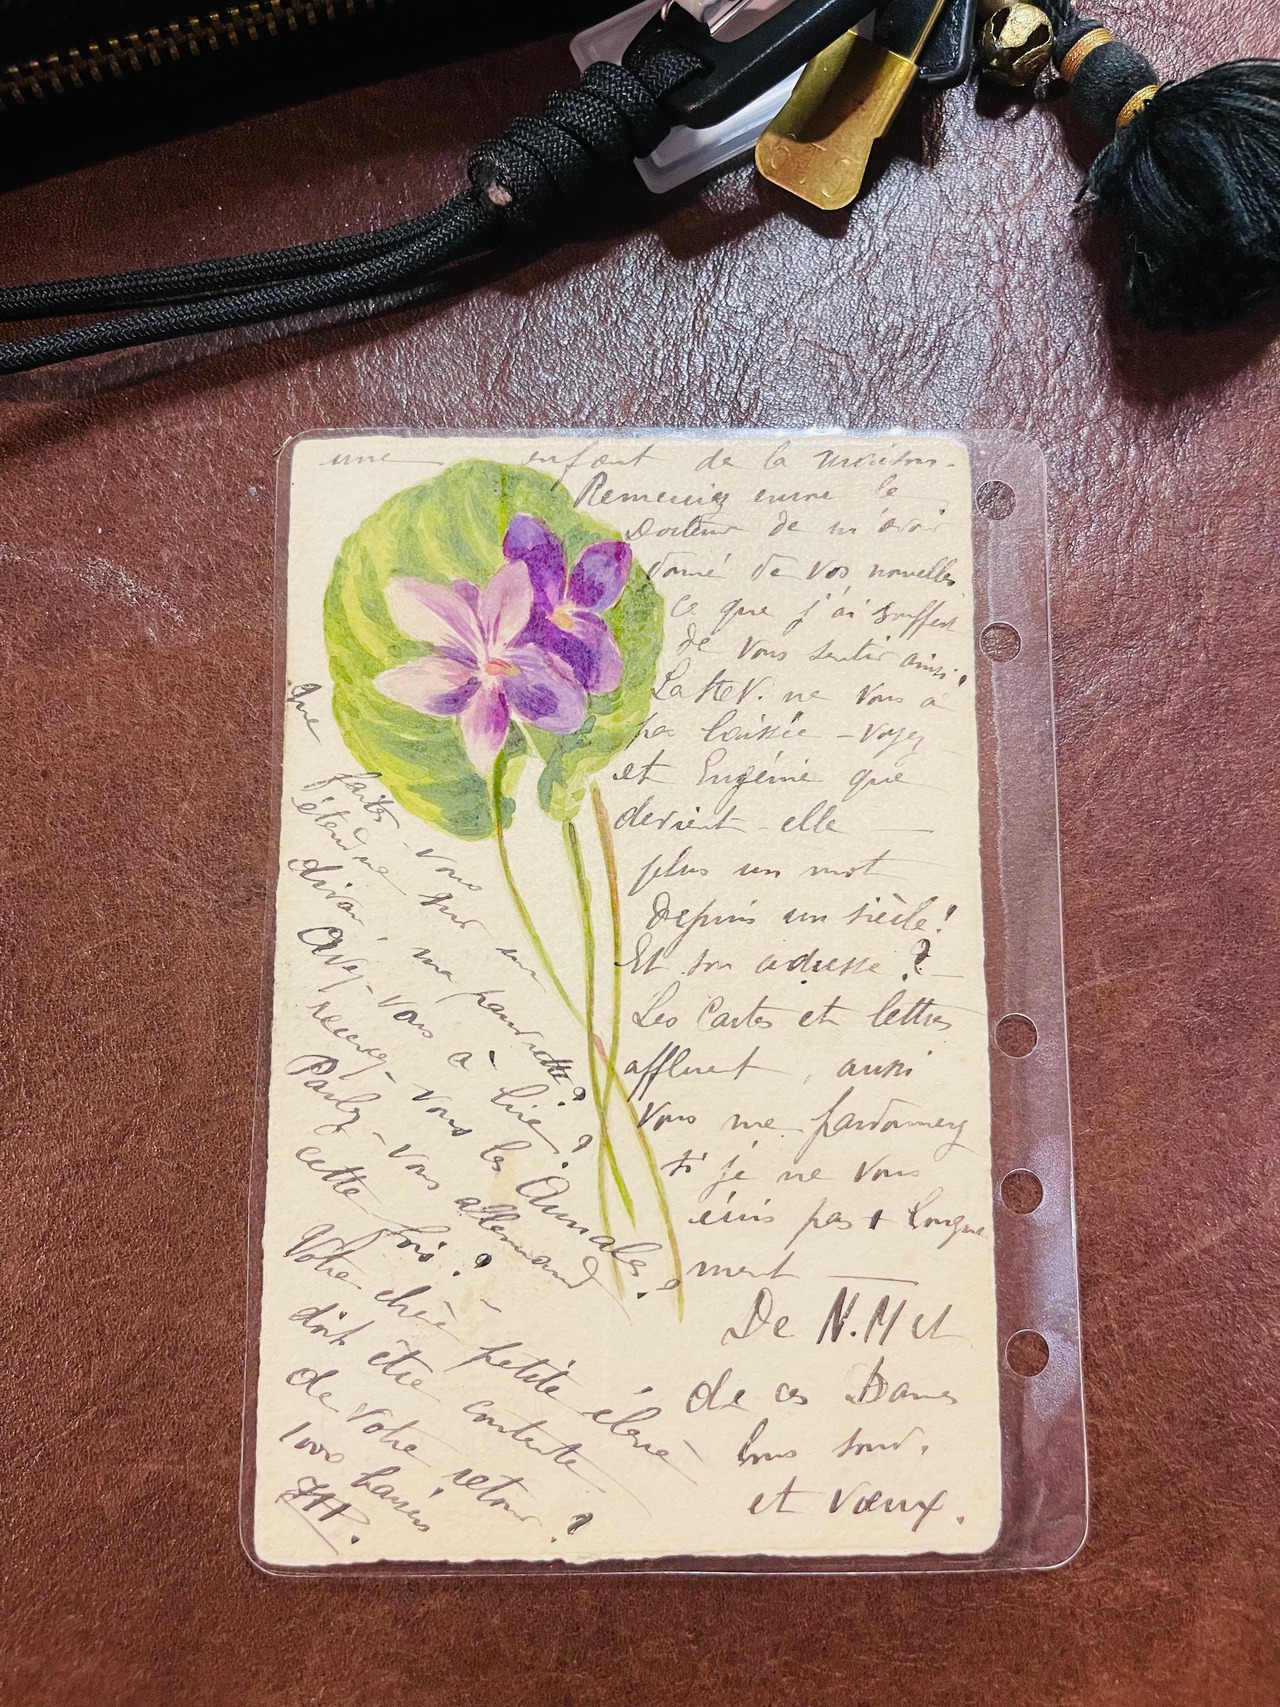 une enfant de la maison.
Remerciez encore le
Docteur de m'avoir
donné de vos nouvelles
ce que j'ai souffert
de vous sentir ainsi.
La Ste V. ne vous a
pas laissée - voyez
et Eugénie que
devient-elle —
plus un mot
depuis un siècle!
Et son adresse? —
Les Cartes et lettres
affluent, aussi
vous me pardonnerez
si je ne vous
écris pas + longue
ment —
De N. M et
de ces Dames
bons souv.
et vœux.
que
faites-vous
étendue sur un
divan, ma pauvrette?
Avez-vous à lire?
recevez-vous les Annales?
Parlez-vous allemand
cette fois? -
Votre chère petite élève
doit être contente
de votre retour?
1000 baisers